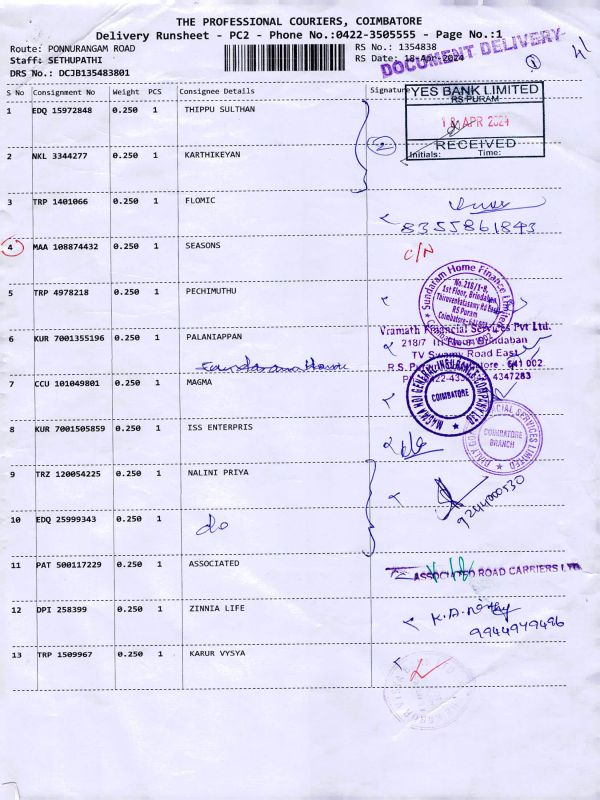 THE PROFESSIONAL COURIERS, COIMBATORE
Delivery Runsheet - PC2 - Phone No.:0422-3505555 - Page No.:1
Route: PONNURANGAM ROAD
Staff: SETHUPATHI
DRS No.: DCJB135483801
RS No.: 1354838
RS Date: 18-Apr-2024
DOCUMENT DELIVERY
1
S No Consignment No Weight PCS Consignee Details Signature
YES BANK LIMITED
RS PURAM
18 APR 2024
RECEIVED
Initials: Time:
1 EDQ 15972848 0.250 1 THIPPU SULTHAN
2
2 NKL 3344277 0.250 1 KARTHIKEYAN
3 TRP 1401066 0.250 1 FLOMIC
8355861843
4 MAA 108874432 0.250 1 SEASONS
C/N
Sundaram Home Finance Limited
No.218/1-8,
1st Floor, Brindaban,
Thiruvenkatasamy Rd East
RS Puram
Coimbatore-641 002
5 TRP 4978218 0.250 1 PECHIMUTHU
6 KUR 7001355196 0.250 1 PALANIAPPAN
Vramath Financial Services Pvt Ltd.
218/7 Brindaban
TV Swamy Road East,
641 002
4347283
7 CCU 101049801 0.250 1 MAGMA
MAGMA HDI GENERAL INSURANCE COMPANY LTD
COIMBATORE
8 KUR 7001505859 0.250 1 ISS ENTERPRIS
COIMBATORE
BRANCH
9 TRZ 120054225 0.250 1 NALINI PRIYA
9244000530
10 EDQ 25999343 0.250 1 do
11 PAT 500117229 0.250 1 ASSOCIATED
ASSOCIATED ROAD CARRIERS LTD.
12 DPI 258399 0.250 1 ZINNIA LIFE
9944949496
13 TRP 1509967 0.250 1 KARUR VYSYA